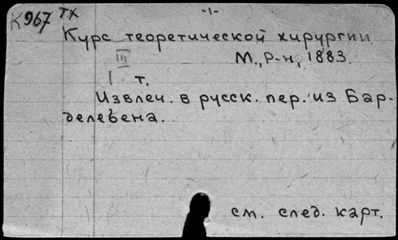 -1-
К967 тх
Курс теоретической хирургии
III М., Р-н, 1883.
I т.
Извлеч. в русск. пер. из Бар-
делевена.
см. след. карт.